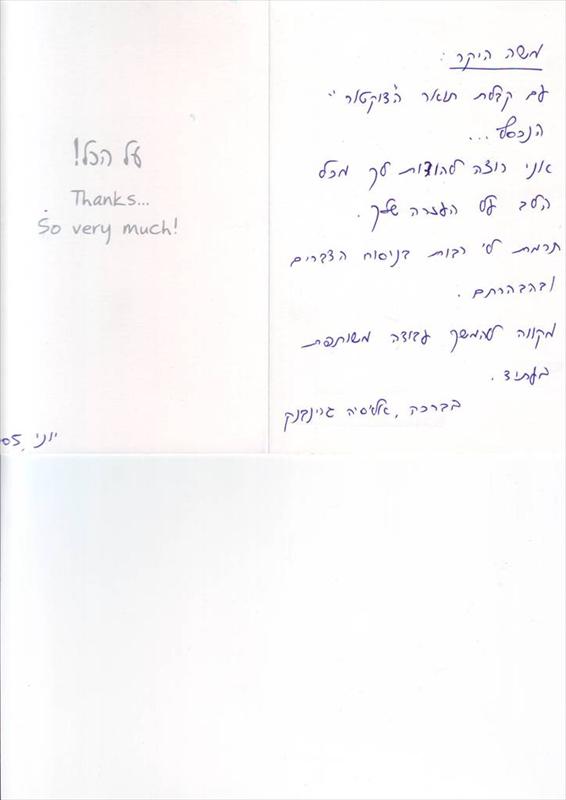 משה היקר:
עם קבלת תואר ה"דוקטור"
הנכסף...
אני רוצה להודות לך מכל
הלב על העזרה שלך.
תרמת לי רבות בניסוח הדברים
ובהבהרתם.
מקווה להמשך עבודה משותפת
בעתיד.
בברכה, אליסיה גרינבנק
על הכל!
Thanks...
So very much!
יוני, 05